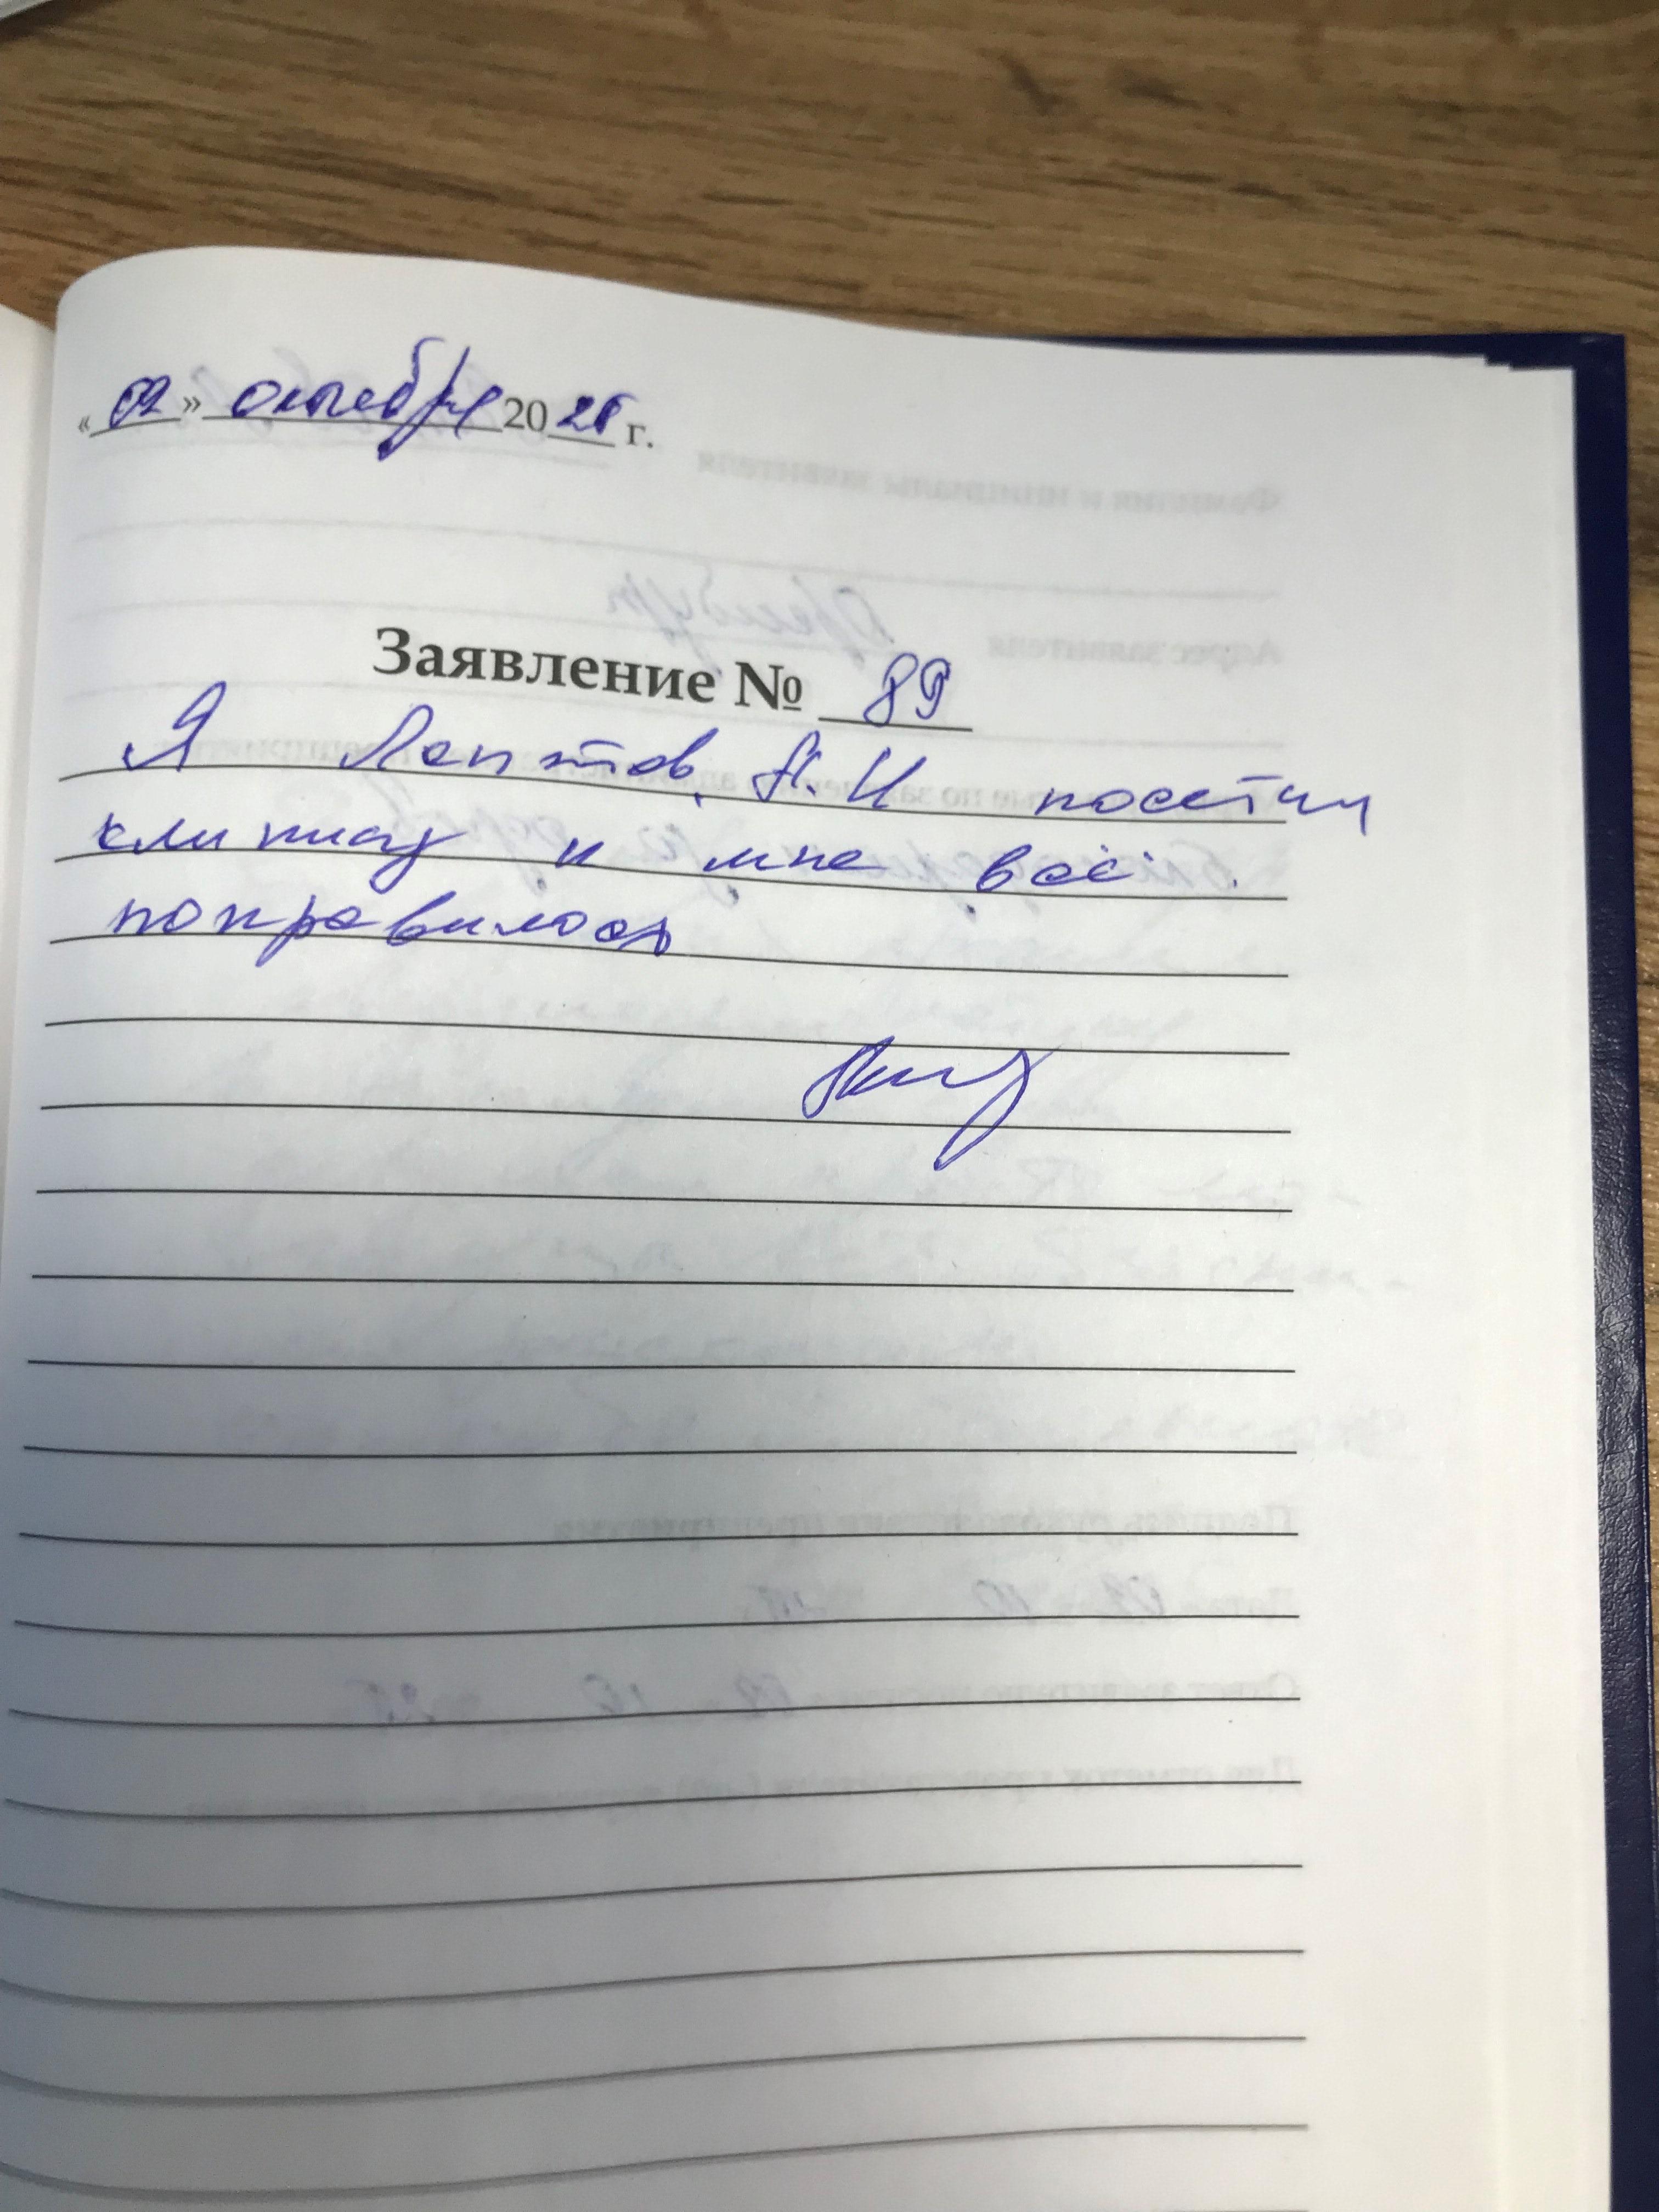 «02» октября 2025 г.
Заявление № 89
Я Лаптов. А. И посетил
клинику и мне всё
понравилось